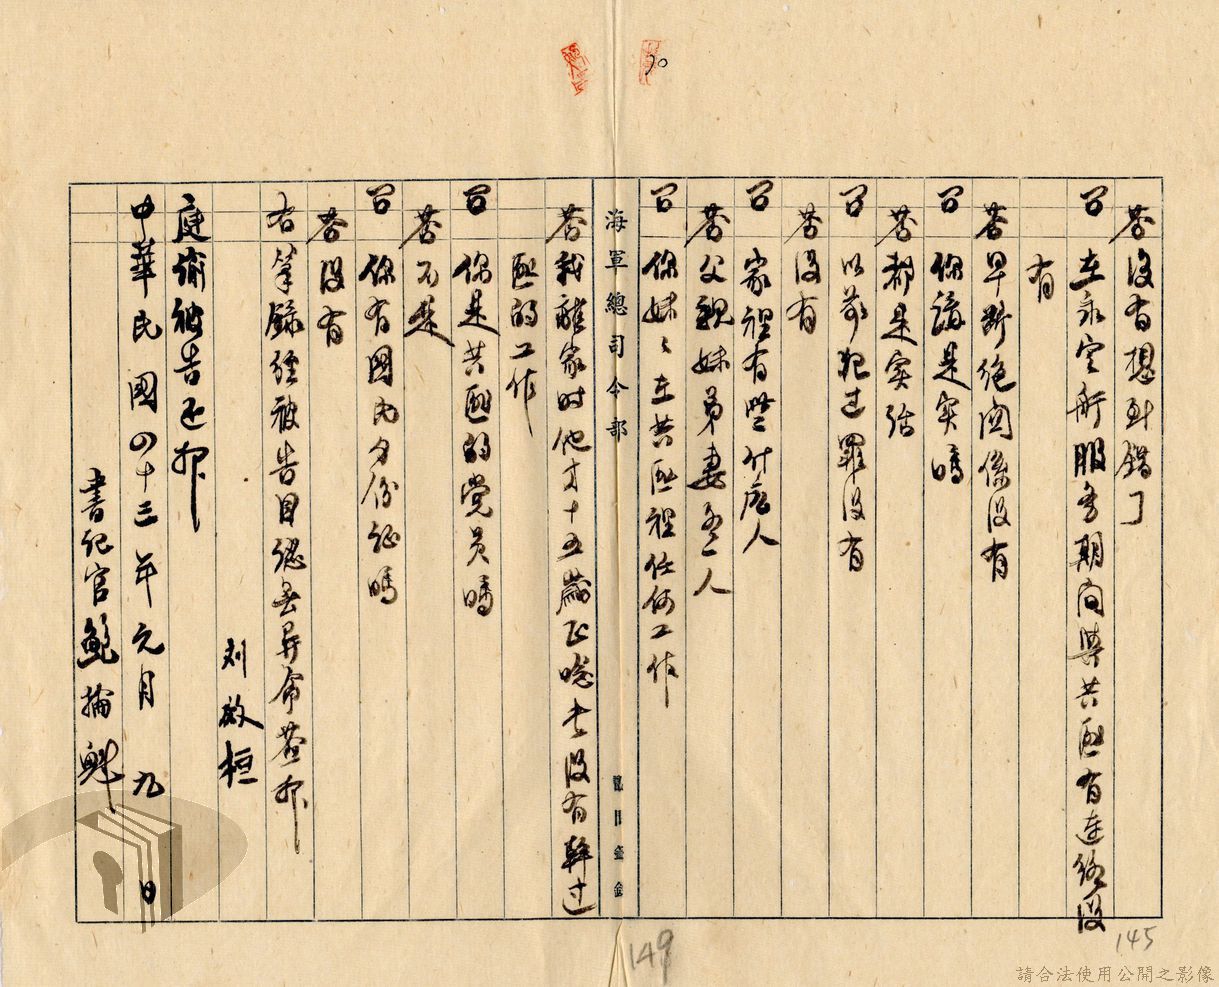 答 没有想到錯了
问 在永定所服务期间與共匪有連絡没
有
答 早断绝関係没有
问 你講是实嗎
答 都是实话
问 以前犯过罪没有
答 没有
问 家裡有些什么人
答 父親妹弟妻各一人
问 你妹々在共匪裡任何工作
海軍總司令部
答 我離家时他才十五歲正唸书没有幹过
匪的工作
问 你是共匪的党员嗎
答 不是
问 你有國民身份证嗎
答 没有
右筆錄經被告自認無異命簽押
刘啟桓
庭諭被告还押
中華民國四十三年元月九日
書记官鮑掄魁
149
145
請合法使用公開之影像